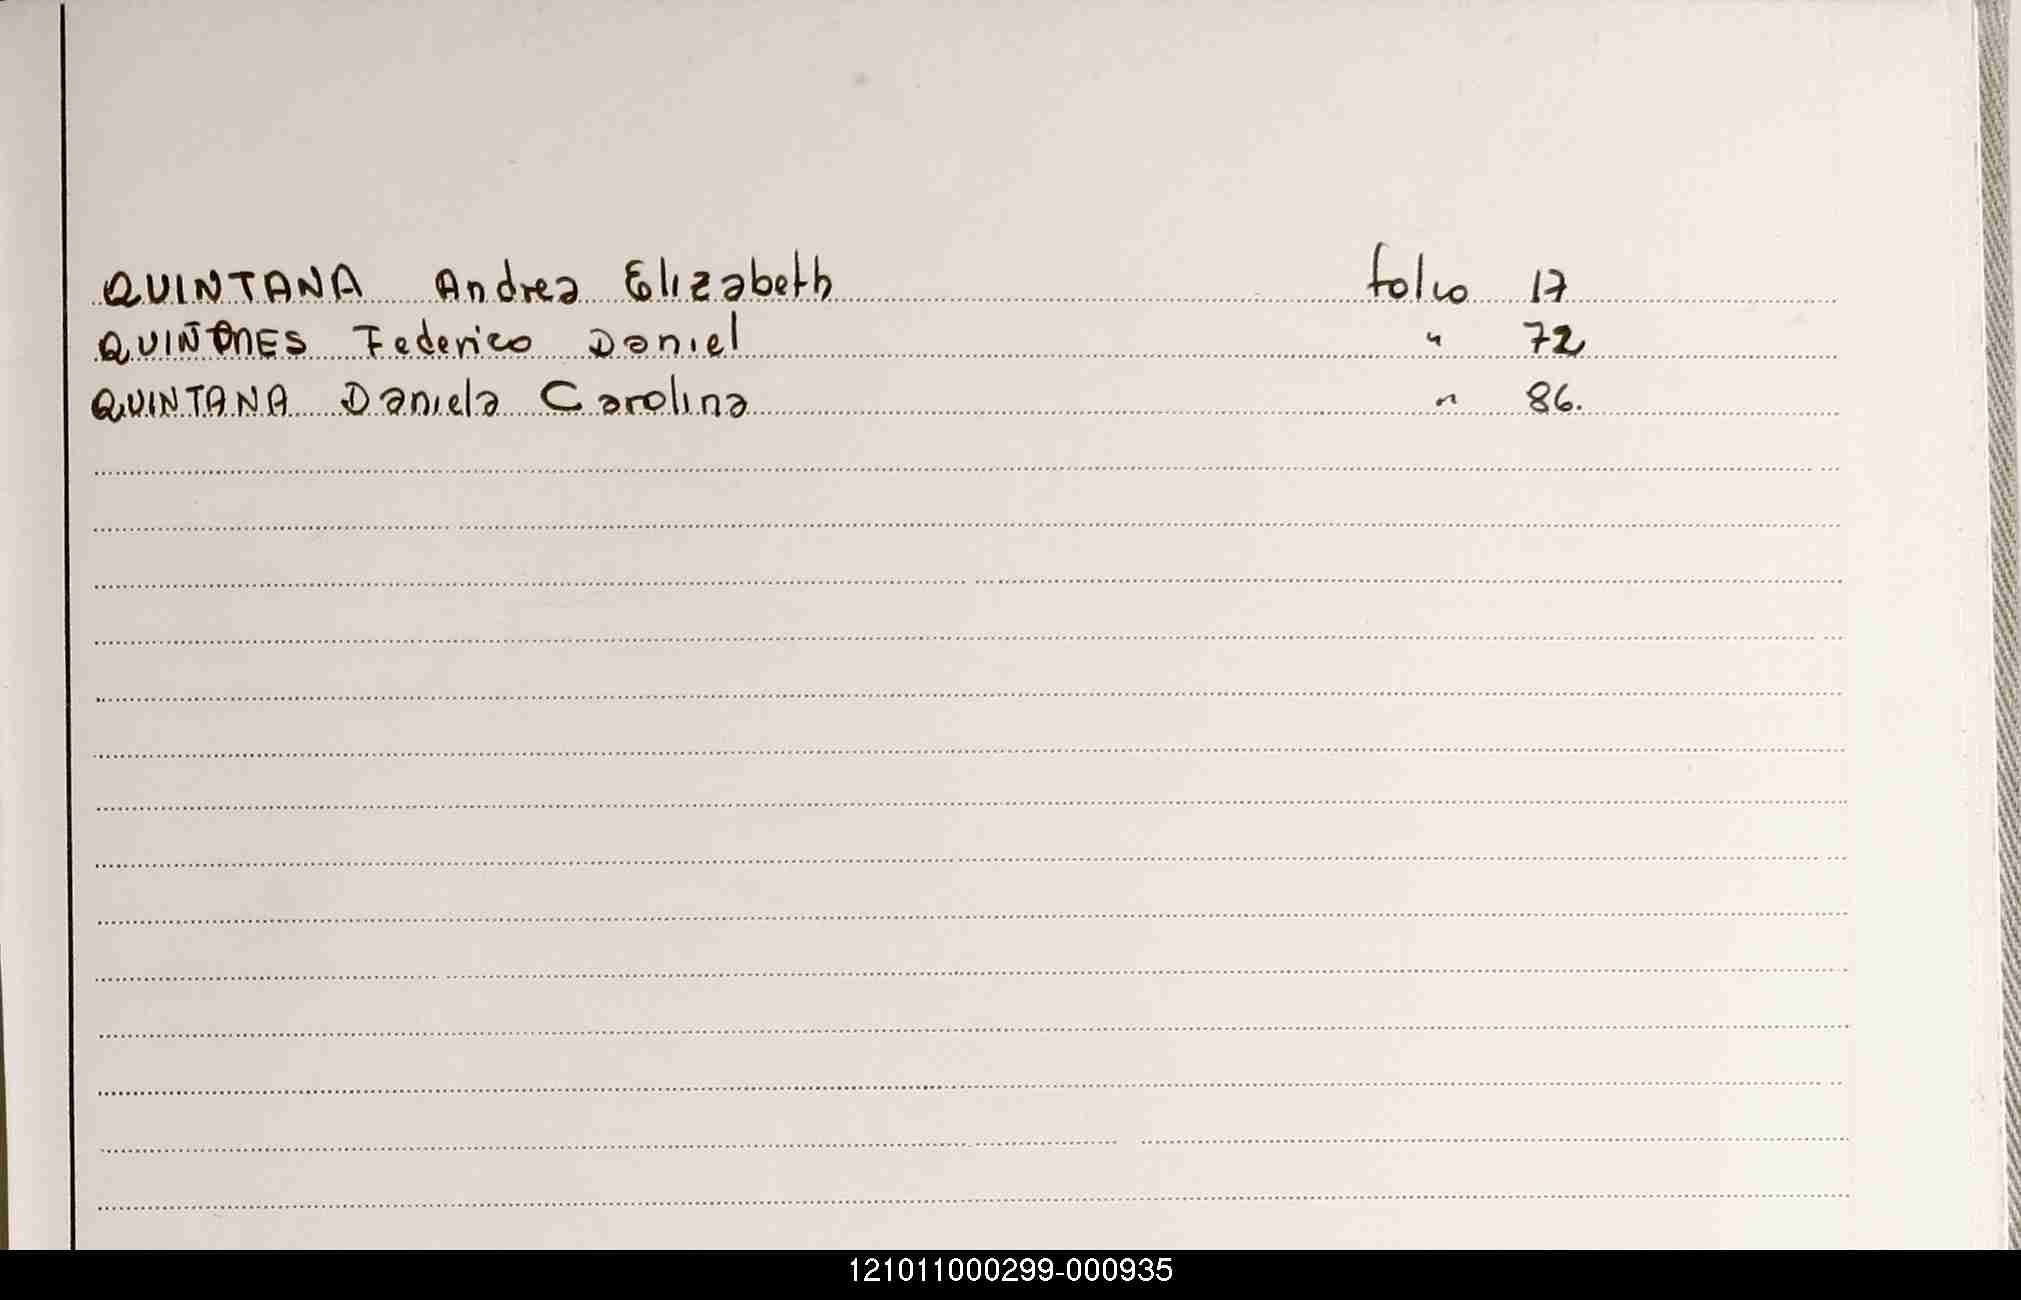 QUINTANA Andrea Elizabeth folio 17
QUIÑONES Federico Daniel " 72
QUINTANA Daniela Carolina " 86.
121011000299-000935